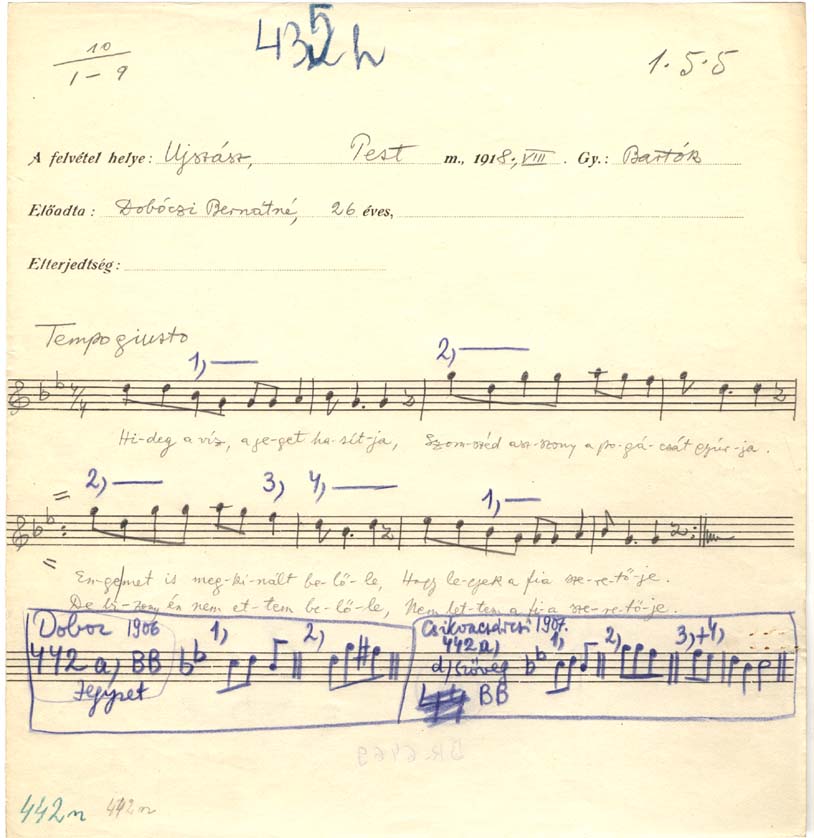 10
1-9
435h
1.5.5
A felvétel helye: Ujszász, Pest m., 1918, VIII. Gy.: Bartók
Előadta: Dobóczi Bernátné, 26 éves,
Elterjedtség:
Tempo giusto
1, 2,
4/4
Hi-deg a víz, a je-get ha-sít-ja, Szom-széd asz-szony a po-gá-csát gyúr-ja.
2, 3, 4, 1,
En-gemet is meg-kí-nált be-lő-le, Hogy le-gyek a fia sze-re-tő-je.
De bi-zony én nem et-tem be-lő-le, Nem let-tem a fi-a sze-re-tő-je.
Doboz 1906
442 a) BB
Jegyzet
1, 2,
1907.
442 a)
d) szöveg
BB
1, 2, 3,+4,
BR 6469
442n 442n